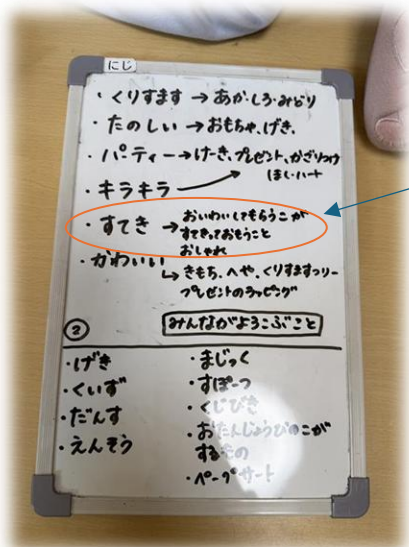 にじ
・くりすます→あか・しろ・みどり
・たのしい→おもちゃ、げき、
・パーティー→けーき、プレゼント、かざりつけ
ほし・ハート
・キラキラ
・すてき→おいわいしてもらうこが
すてきっておもうこと
おしゃれ
・かわいい
↳きもち、へや、くりすますつりー
プレゼントのラッピング
② みんながよろこぶこと
・げき
・くいず
・だんす
・えんそう
・まじっく
・すぽーつ
・くじびき
・おたんじょうびのこが
するの
・ペープサート